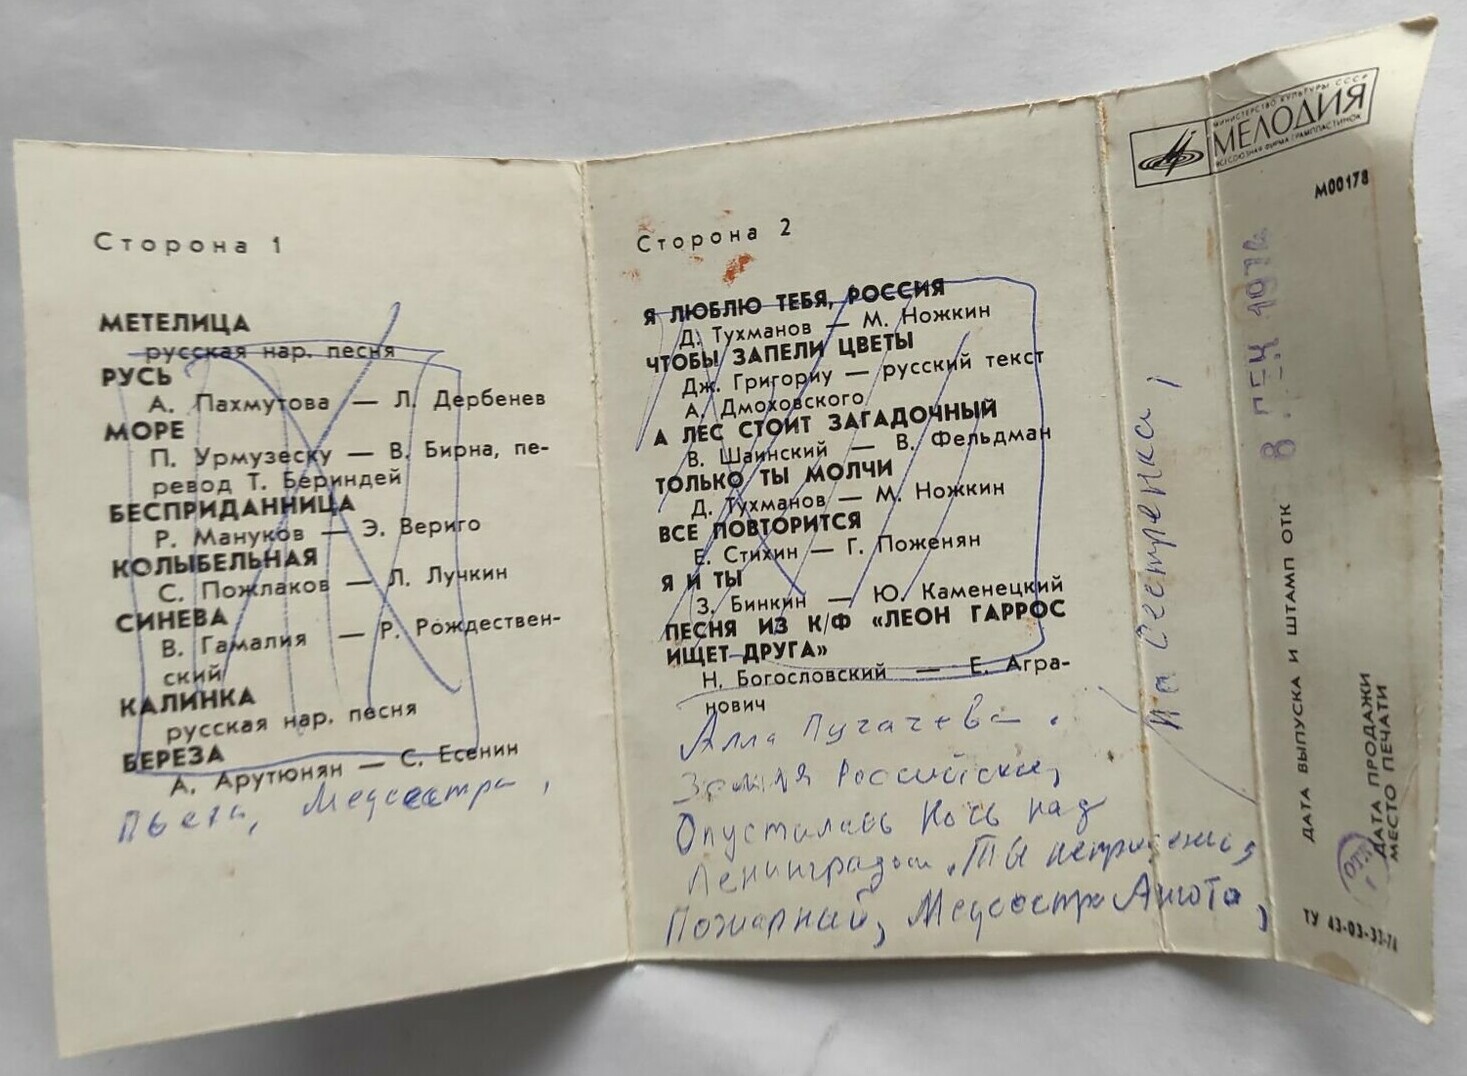 Сторона 1
МЕТЕЛИЦА
русская нар. песня
РУСЬ
А. Пахмутова — Л. Дербенев
МОРЕ
П. Урмузеску — В. Бирна, пе-
ревод Т. Бериндей
БЕСПРИДАННИЦА
Р. Мануков — Э. Вериго
КОЛЫБЕЛЬНАЯ
С. Пожлаков — Л. Лучкин
СИНЕВА
В. Гамалия — Р. Рождествен-
ский
КАЛИНКА
русская нар. песня
БЕРЕЗА
А. Арутюнян — С. Есенин
Пьеха, Медсестра,
Сторона 2
Я ЛЮБЛЮ ТЕБЯ, РОССИЯ
Д. Тухманов — М. Ножкин
ЧТОБЫ ЗАПЕЛИ ЦВЕТЫ
Дж. Григориу — русский текст
А. Дмоховского
А ЛЕС СТОИТ ЗАГАДОЧНЫЙ
В. Шаинский — В. Фельдман
ТОЛЬКО ТЫ МОЛЧИ
Д. Тухманов — М. Ножкин
ВСЕ ПОВТОРИТСЯ
Е. Стихин — Г. Поженян
Я И ТЫ
З. Бинкин — Ю. Каменецкий
ПЕСНЯ ИЗ К/Ф «ЛЕОН ГАРРОС
ИЩЕТ ДРУГА»
Н. Богословский — Е. Агра-
нович
Алла Пугачева.
Земля Российская,
Опустилась Ночь над
Ленинградом, Ты
Пожарный, Медсестра Анюта,
Сестренка,
МИНИСТЕРСТВО КУЛЬТУРЫ СССР
МЕЛОДИЯ
ВСЕСОЮЗНАЯ ФИРМА ГРАМПЛАСТИНОК
М00178
ДАТА ВЫПУСКА И ШТАМП ОТК
ДАТА ПРОДАЖИ
МЕСТО ПЕЧАТИ
ОТК
ТУ 43-03-33-74